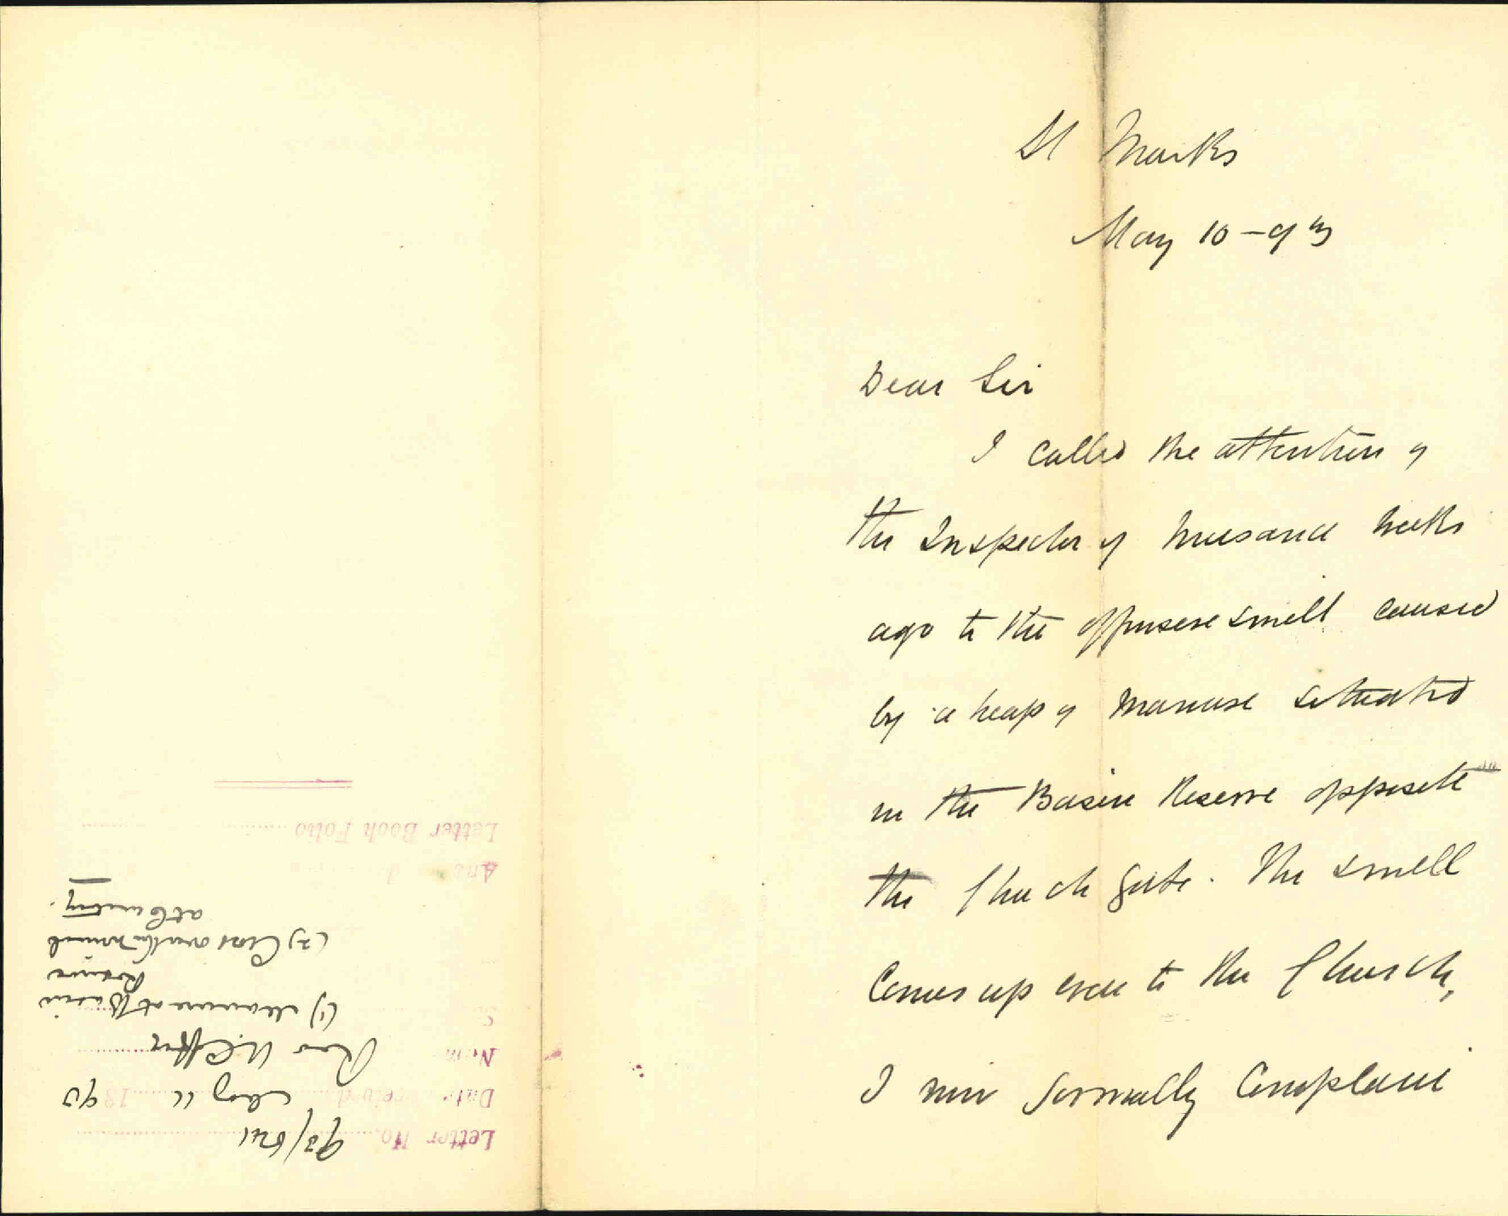 St Marks
May 10 - 93
Dear Sir
I called the attention of
the Inspector of Nuisance weeks
ago to the offensive smell caused
by a heap of manure situated
in the Basin Reserve opposite
the Church gate. The smell
comes up even to the Church,
I now formally complain
Letter No. 93/
Date received May 11 1893
Name Rev
(1) Manure at Basin
Reserve
(2)
at Cemetery.
Letter Book Folio